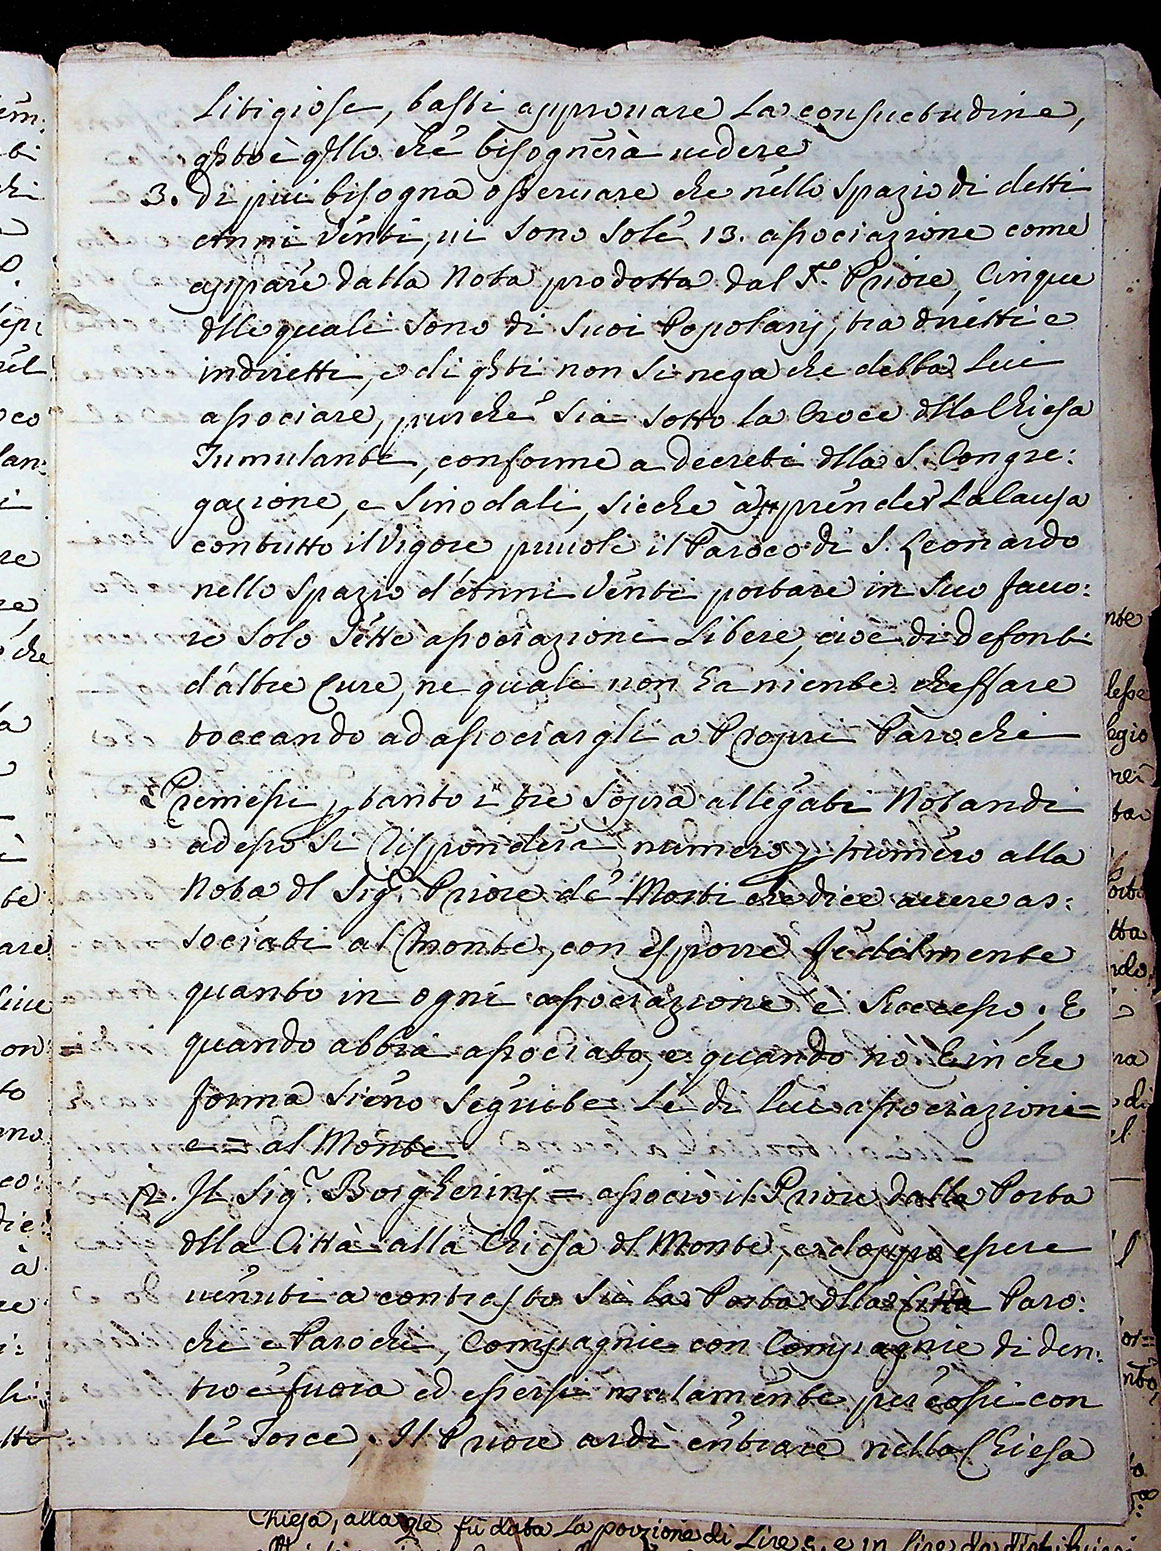 litigiose, basti approuare la consuetudine,
qsto è qllo che bisognerà uedere
3. Di più bisogna osseruare che nello spazio di detti
Anni Venti, ui sono sole 13. asociazione come
appare dalla Nota prodotta dal Sr. Priore, Cinque
dlle quali sono di suoi Popolanj, tra diretti e
indiretti, e di qsti non si nega che debba lui
asociare, purche sia sotto la Croce dlla Chiesa
Tumulante, conforme a decreti dlla S. Congre:
gazione, e Sinodali, sicche à prender la Causa
con tutto il Vigore puole il Paroco di S. Leonardo
nello spazio d'Anni Venti portare in suo fauo:
re solo sette asociazioni libere, cioè di defonti
d'altre Cure, ne quali non ha niente che ffare
toccando ad asociargli a Propri Parochi
Premesi ptanto i tre sopra allegati Notandi
adesso si risponderà numero p numero alla
Nota dl Sigr. Priore de Morti che dice auere as:
sociati al Monte, con esporre fedelmente
quanto in ogni asociazione è successo; E
quando abbia asociato, e quando nò. E in che
forma sieno seguite le di lui asociazioni=
e = al Monte
Il Sigr. Borgherinj = asociò il Priore dalla Porta
dlla Città alla Chiesa dl Monte, e doppo esere
uenuti a contrasto sù la Porta dlla Città Paro:
chi e Parochi, Compagnie con Compagnie di den:
tro e fuora ed essersi malamente percossi con
le Torce, Il Priore ardì entrare nella Chiesa
Chiesa, alla qle fù data la porzione di Lire